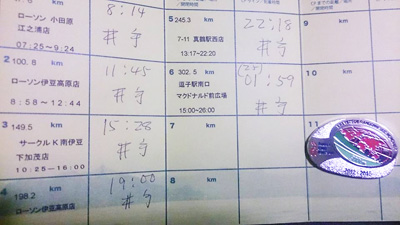 km
ローソン 小田原
江之浦店
07:25～9:24
8:14
井守
2
100.8
km
ローソン伊豆高原店
8:58～12:44
11:45
井守
3
149.5
km
サークルK南伊豆
下加茂店
10:25－16:00
15:28
井守
4
198.2
km
ローソン伊豆高原店
19:00
井守
5
245.3
km
7-11 真鶴駅西店
13:17～22:20
22:18
井守
6
302.5
km
逗子駅南口
マクドナルド前広場
15:00～26:00
01:59
井守
7
km
8
km
9
km
10
km
11